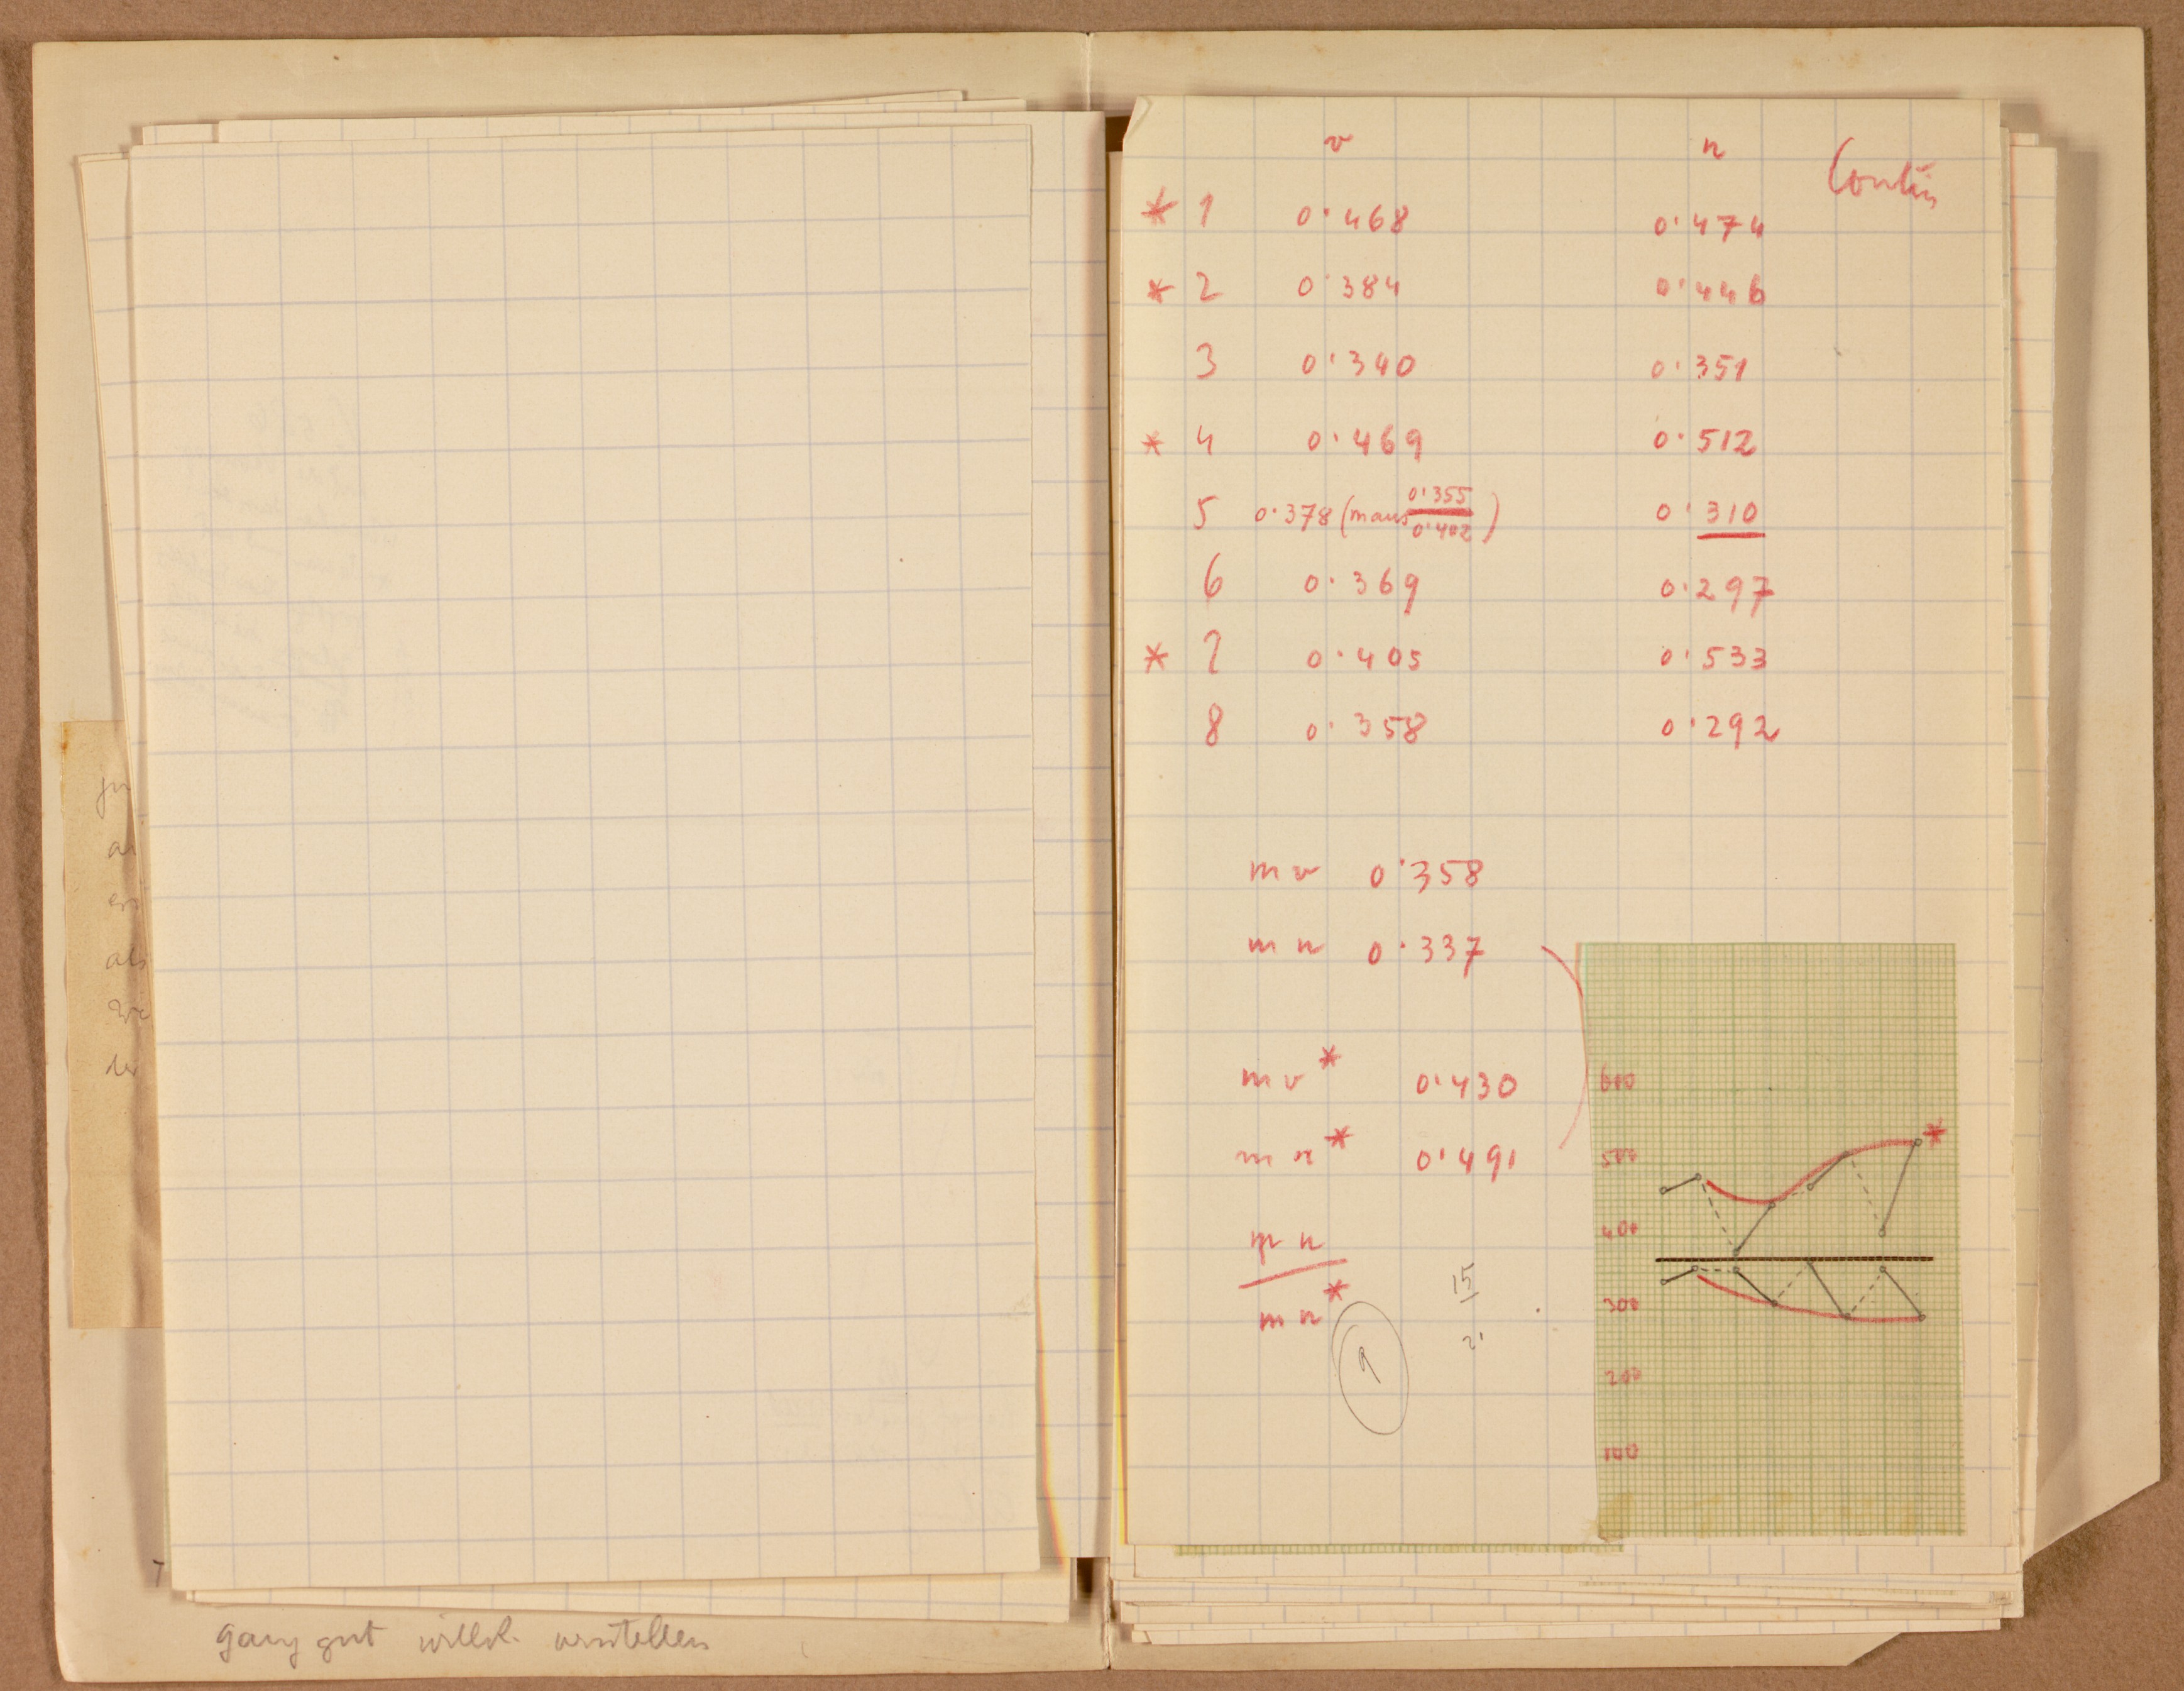 v n Contin
* 1 0·468 0·474
* 2 0·384 0·446
3 0·340 0·351
* 4 0·469 0·512
5 0·378 (maus 0·355 / 0·402) 0·310
6 0·369 0·297
* 7 0·405 0·533
8 0·358 0·292
m v 0·358
m n 0·337
m v* 0·430
m n* 0·491
m n
m n*
15
21
9
600
500
*
400
300
200
100
als
der
ganz gut willk. verstellen